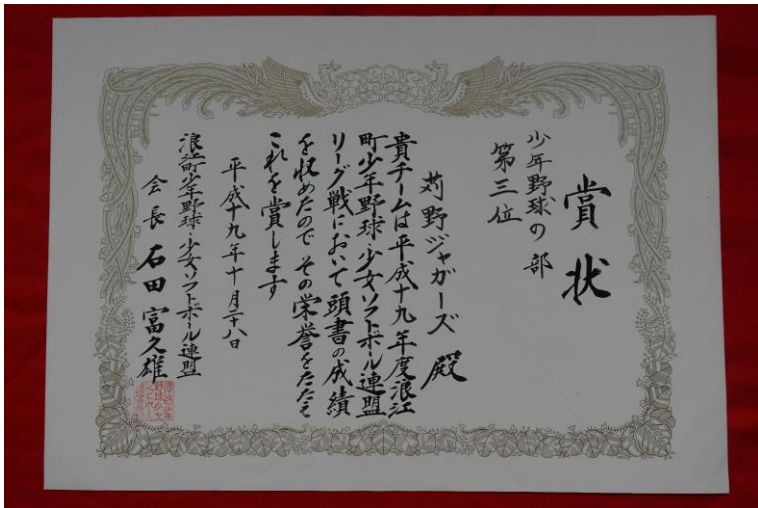 賞状
少年野球の部
第三位
苅野ジャガーズ殿
貴チームは平成十九年度浪江
町少年野球・少女ソフトボール連盟
リーグ戦において頭書の成績
を収めたので その栄誉をたたえ
これを賞します
平成十九年十月二十八日
浪江町少年野球・少女ソフトボール連盟
会長 石田富久雄